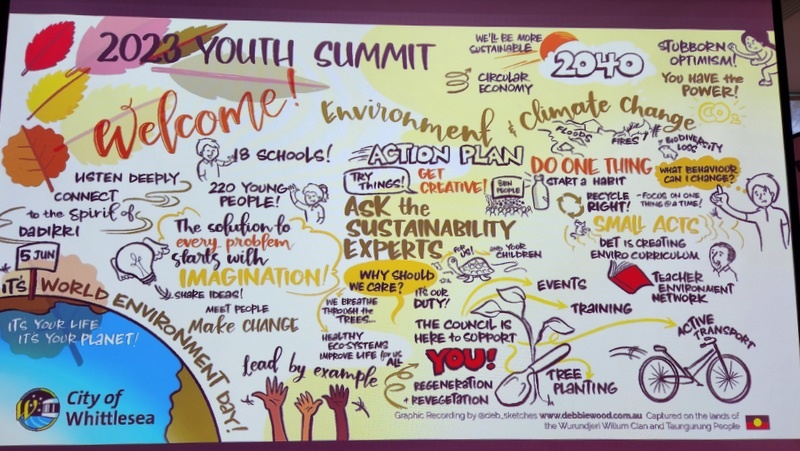 2023 YOUTH SUMMIT
Welcome!
LISTEN DEEPLY
CONNECT
to the spirit of
DADIRRI
5 JUN
IT'S WORLD ENVIRONMENT DAY!
IT'S YOUR LIFE
IT'S YOUR PLANET!
City of
Whittlesea
18 SCHOOLS!
220 YOUNG
PEOPLE!
The solution to
every problem
starts with
IMAGINATION!
SHARE IDEAS!
MEET PEOPLE
Make CHANGE
Lead by example
WE'LL BE MORE
SUSTAINABLE
2040
CIRCULAR
ECONOMY
STUBBORN
OPTIMISM!
YOU HAVE the
POWER!
CO2
Environment & Climate Change
FLOODS
FIRES
BIODIVERSITY
LOSS
ACTION PLAN
TRY
THINGS!
GET
CREATIVE!
PEOPLE
ASK the
SUSTAINABILITY
EXPERTS
FOR
US!
AND YOUR
CHILDREN
WHY SHOULD
WE CARE?
WE BREATHE
THROUGH the
TREES...
HEALTHY
ECO-SYSTEMS
IMPROVE LIFE for US
ALL
IT'S OUR
DUTY!
THE COUNCIL is
HERE to SUPPORT
YOU!
REGENERATION
+ REVEGETATION
DO ONE THING
START A HABIT
RECYCLE
RIGHT!
WHAT BEHAVIOUR
CAN I CHANGE?
- FOCUS ON ONE
THING @ A TIME!
SMALL ACTS
DET IS CREATING
ENVIRO CURRICULUM
TEACHER
ENVIRONMENT
NETWORK
EVENTS
TRAINING
ACTIVE
TRANSPORT
TREE
PLANTING
Graphic Recording by @deb_sketches www.debbiewood.com.au Captured on the lands of
the Wurundjeri Willum Clan and Taungurung People